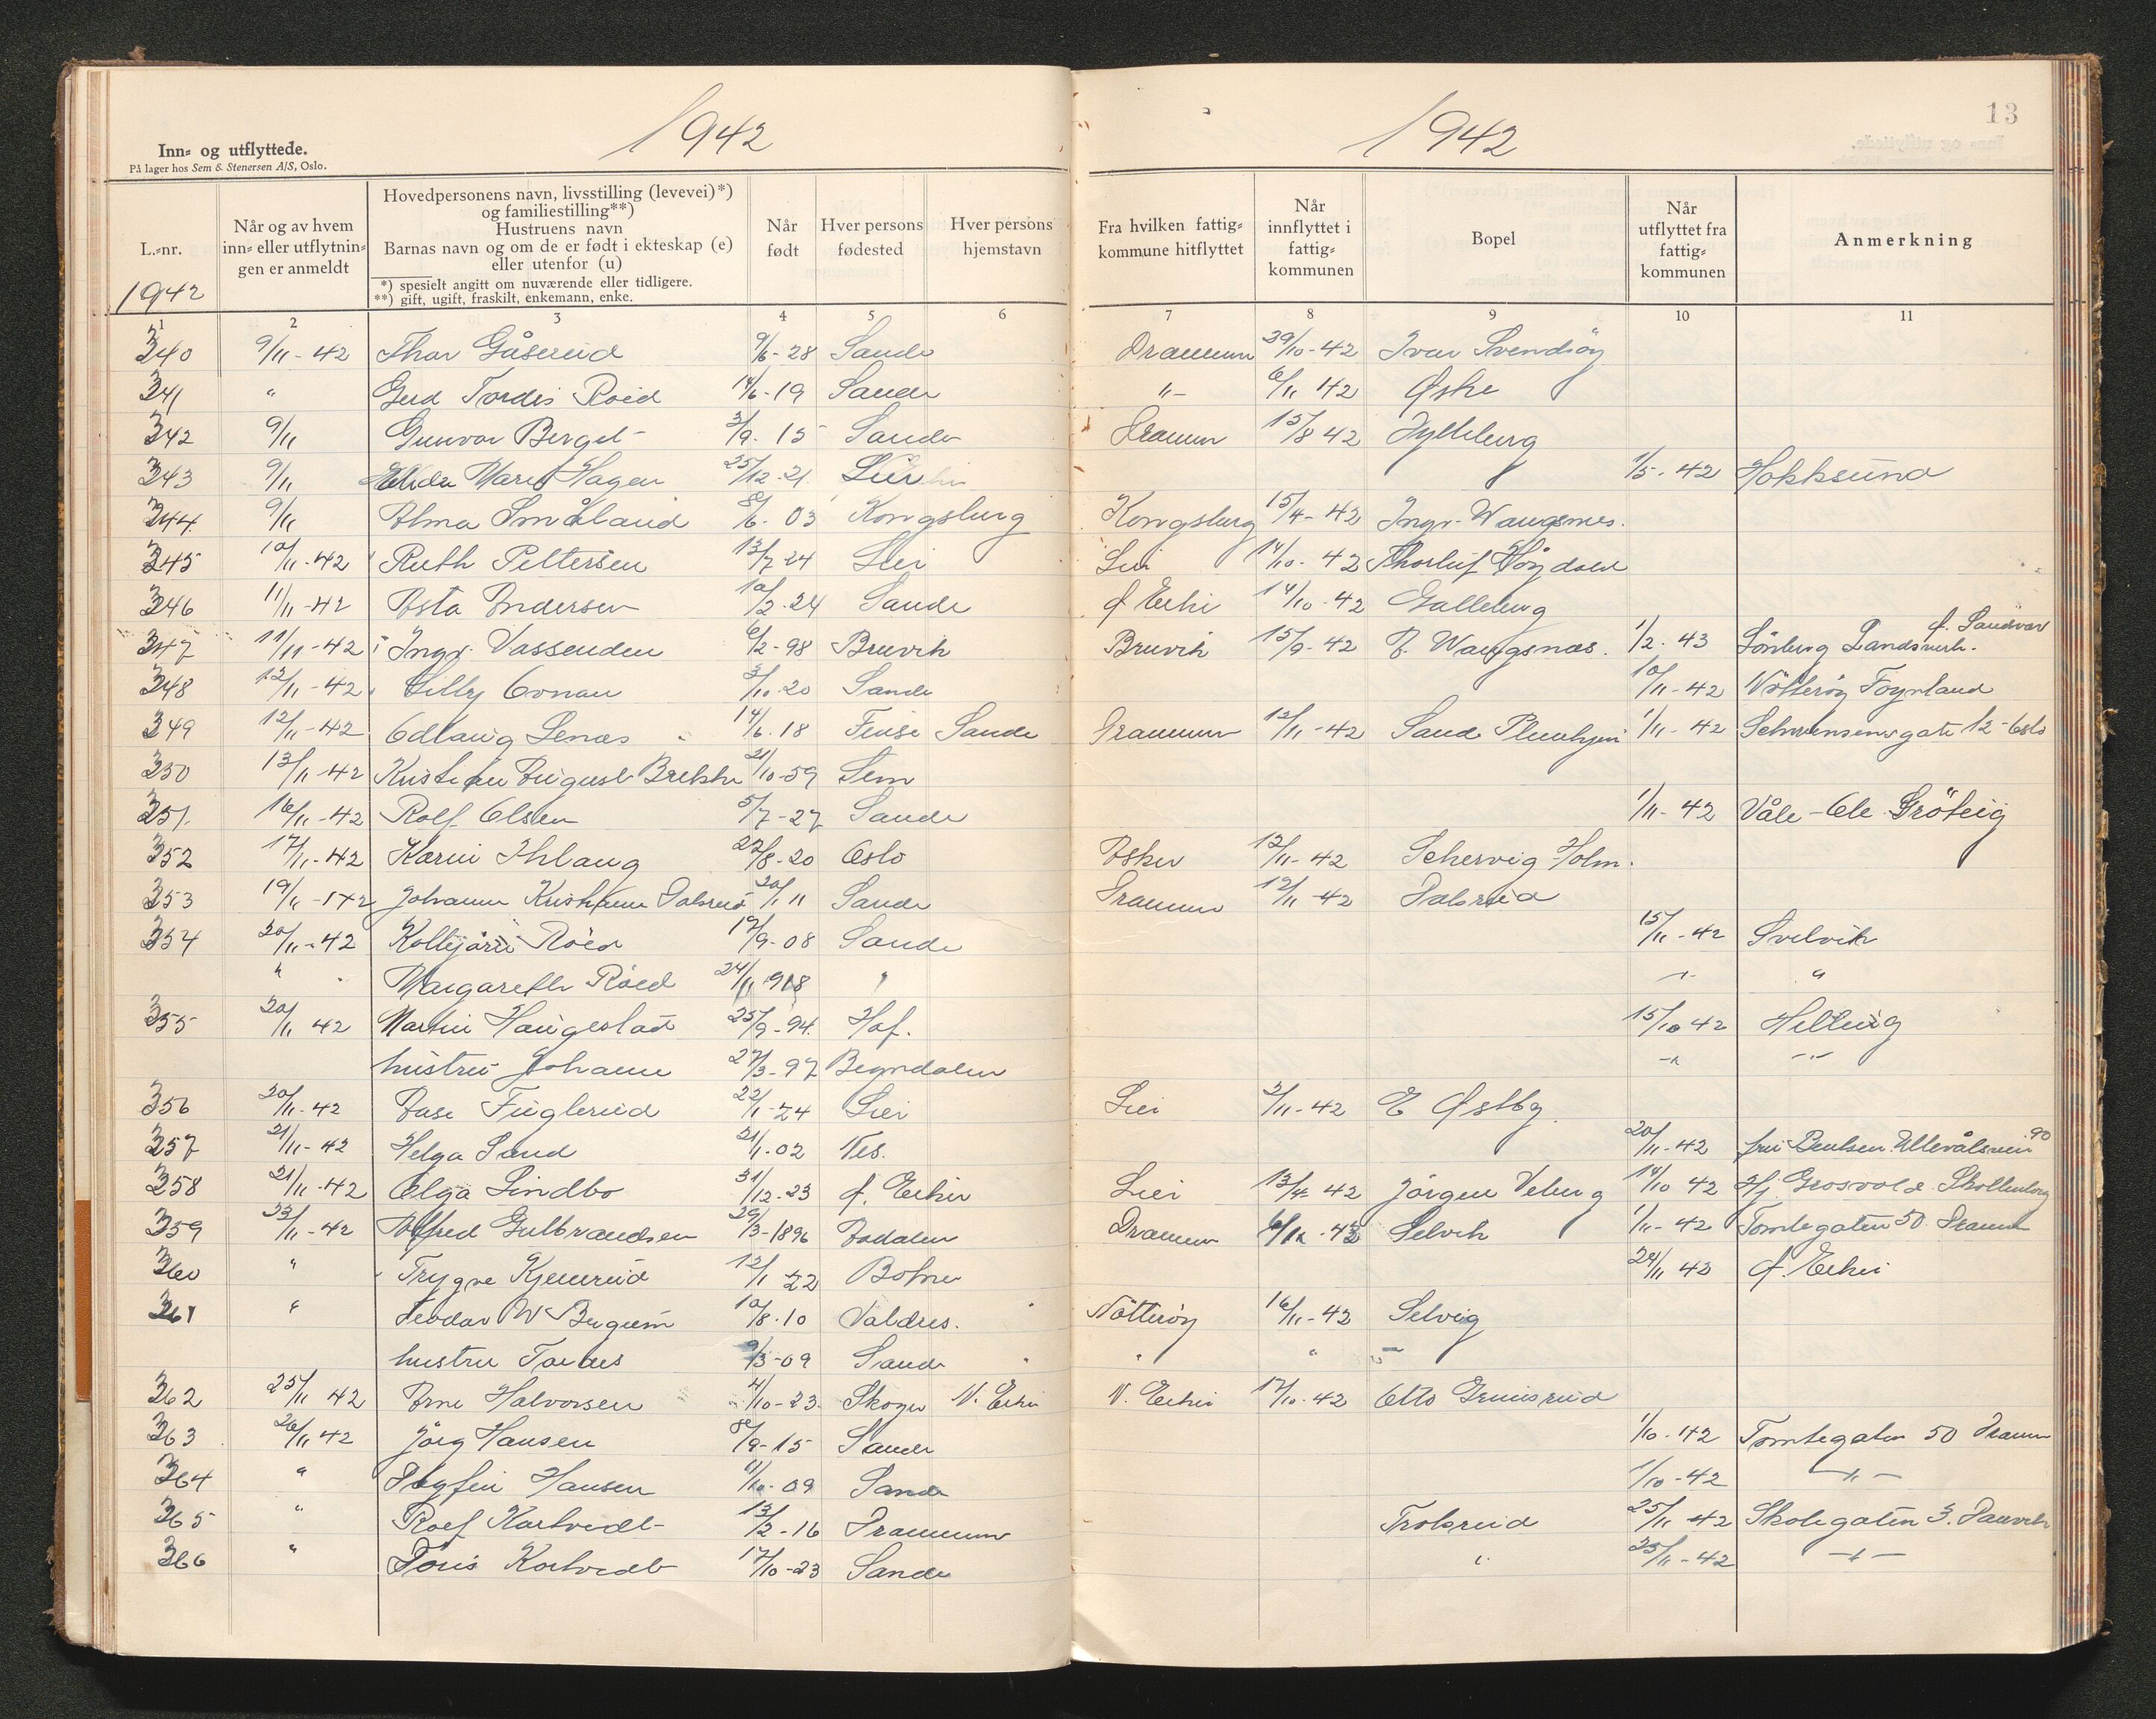 1942
1942
13
Inn- og utflyttede.
På lager hos Sem & Stenersen A/S, Oslo.
L.-nr.
1942
Når og av hvem
inn- eller utflytnin-
gen er anmeldt
Hovedpersonens navn, livsstilling (levevei)*)
og familiestilling**)
Hustruens navn
Barnas navn og om de er født i ekteskap (e)
eller utenfor (u)
*) spesielt angitt om nuværende eller tidligere.
**) gift, ugift, fraskilt, enkemann, enke.
Når
født
Hver persons
fødested
Hver persons
hjemstavn
Fra hvilken fattig-
kommune hitflyttet
Når
innflyttet i
fattig-
kommunen
Bopel
Når
utflyttet fra
fattig-
kommunen
Anmerkning
1 2 3 4 5 6 7 8 9 10 11
340 9/11-42 Thor Gåserud 9/6-28 Sande Drammen 29/10-42 Ivar Svendsøy
341 " Gerd Tordis Roed 14/6-19 Sande "- 6/11 42 Øske
342 9/11 Gunvor Berget 3/9-15 Sande Dramm 15/8 42
343 9/11 Marie Hagen 25/12-21 Lier 1/5-42 Hokksund
344 9/11 Alma Småland 8/6-03 Kongsberg Kongsberg 15/4-42 Ingv. Wangsnes.
345 10/11-42 Ruth Pettersen 13/7-24 Lier Lier 14/10-42 Thorleif Høydahl
346 11/11-42 Asta Andersen 10/2-24 Sande Ø Eiker 14/10-42 Galleberg
347 11/11-42 Ingv. Vassenden 6/2-98 Bruvik Bruvik 15/9-42 Wangsnæs. 1/2-43 Lönberg Landsverk. Ø. Sandsvær
348 12/11-42 Lilly Conau 3/10-20 Sande 10/11-42 Nötteröy Föynland
349 12/11-42 Odlaug Lenæs 14/6-18 Finse Sande Drammen 12/11-42 Sande Pleiehjem 1/11-42 Schwensensgate 12 Oslo
350 13/11-42 Kristian August Brekke 21/10-59 Sem
351 16/11-42 Rolf Olsen 5/7-27 Sande 1/11-42 Våle - Ole Gröteig
352 17/11-42 Karin Ihlaug 22/8-20 Oslo Asker 12/11-42 Schervig Holm.
353 19/11-42 Johanne Kristiane Dalsrud 20/1 11 Sande Drammen 12/11-42 Dalsrud
354 20/11-42 Röed 12/9-08 Sande 15/11-42 Svelvik
" Margareth Röed 24/11 1918 " -"- "
355 20/11 42 Martin Haugestad 25/9-94. Hof. 15/10 42 Hillestad
hustru Johanne 27/3-97 Begndalen -" -"-
356 20/11-42 Aase Fuglerud 22/1-24 Lier Lier 2/11-42 E Østby.
357 21/11-42 Helga Sand 21/1-02 Nes. 20/11-42 fru Bentsen Ullevålsveien 90
358 21/11-42 Olga Lindbo 31/12-23 Ø. Eiker Lier 13/4 42 Jörgen Veberg 14/10 42 Hj. Grosvold Skollenborg
359 23/11-42 Alfred Gulbrandsen 29/3-1896 Aadalen Drammen 42 Selvik 1/11-42 Tomtegaten 50 Dramm
360 " Trygve Kjemrud 12/1 22 Botne 24/11 42 Ø. Eiker
361 " Teodor W Bergum 10/8-10 Valdres. Nötteröy 16/11-42 Selvig
hustru Tordis 9/3-09 Sande " " "
362 25/11 42 Arne Halvorsen 4/10-23 Skoger N. Eiker N. Eiker 17/10-42 Otto Grimsrud
363 26/11 42 Jörg Hansen 8/9-15 Sande 1/10-42 Tomtegaten 50 Dramm
364 " Dagfin Hansen 11/10-09 Sande 1/10-42 -"-
365 " Rolf Kortvedt 13/2-16 Drammen Trolsrud 25/11 42 Skolegaten 3.
366 " Doris Kortvedt 17/10-23 Sande " 25/11-42 -"-